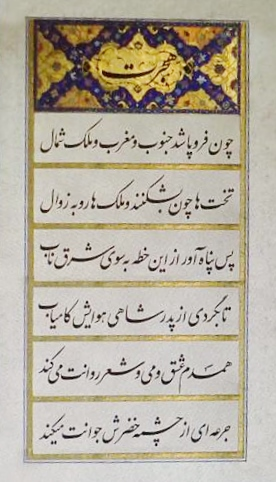 هجرت
چون فرو پاشد جنوب و مغرب و ملک شمال
تخت ها چون بشکنند و ملک ها رو به زوال
پس پناه آور از این خطه به سوی شرق ناب
تا بگردی از پدر شاهی هوایش کامیاب
همدم عشق و می و شعر روانت می کند
جرعه ای از چشمه خضرش جوانت میکند